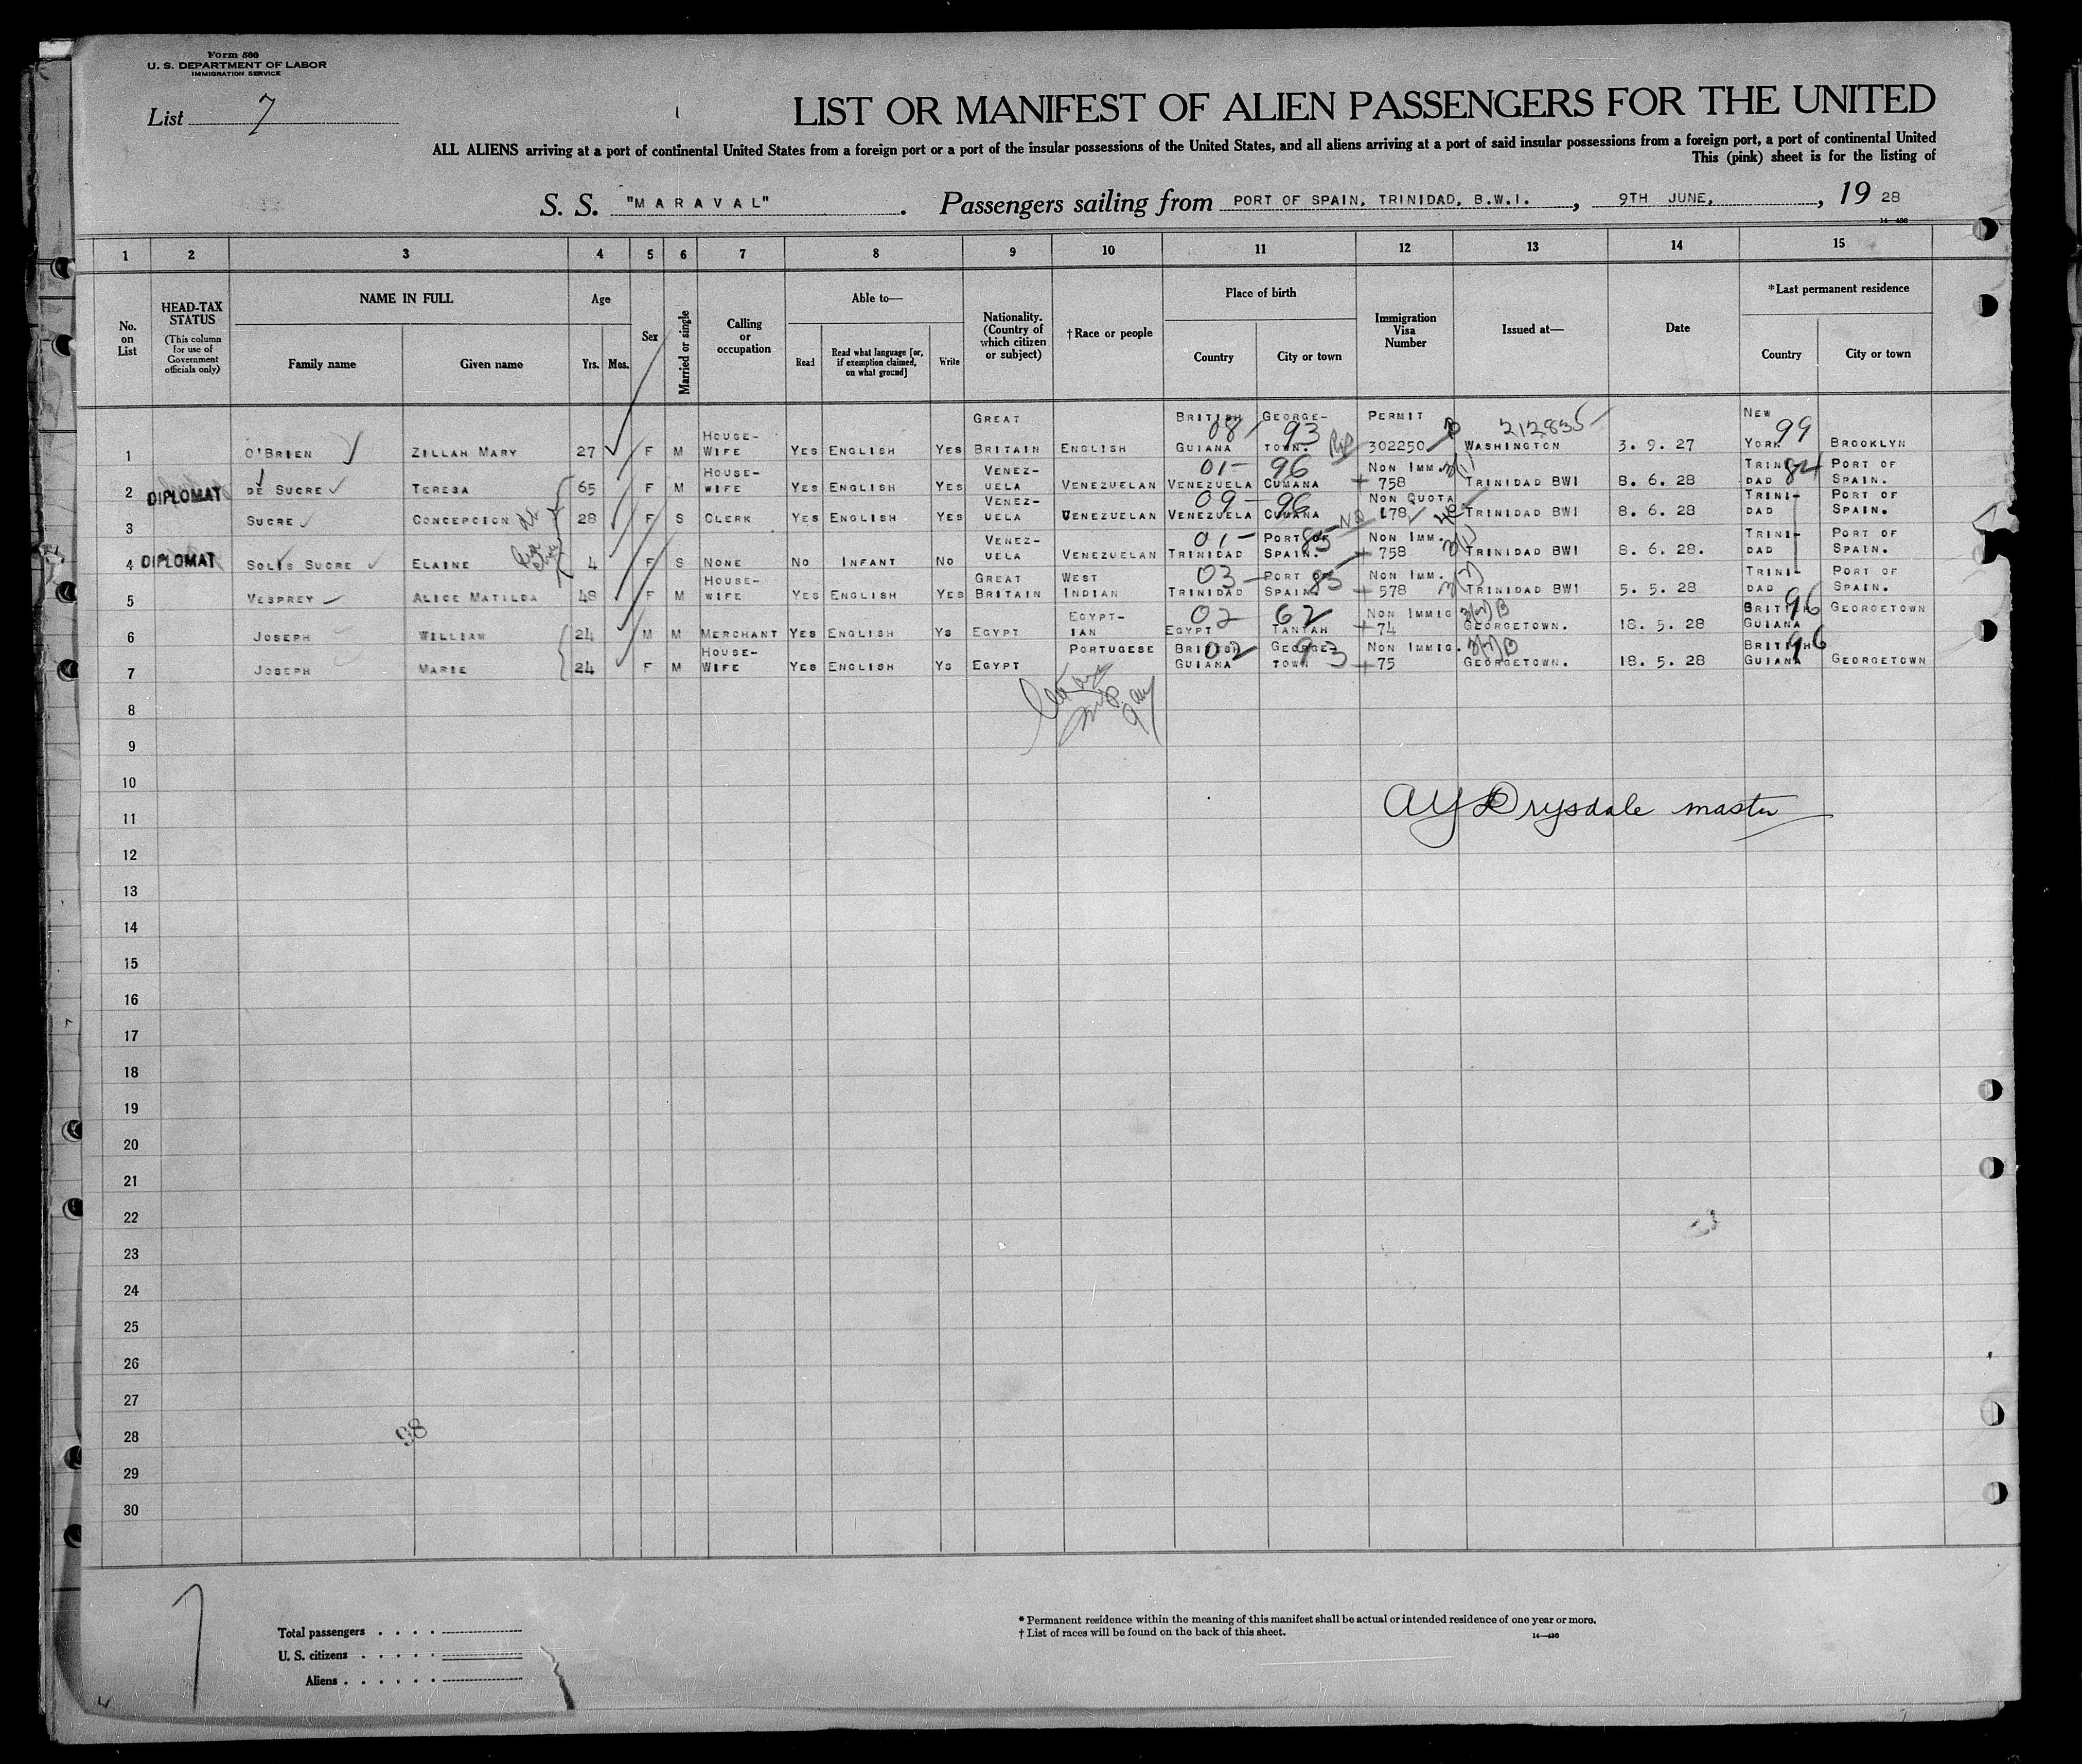 Form 500
U. S. DEPARTMENT OF LABOR
IMMIGRATION SERVICE
List 7
LIST OR MANIFEST OF ALIEN PASSENGERS FOR THE UNITED
ALL ALIENS arriving at a port of continental United States from a foreign port or a port of the insular possessions of the United States, and all aliens arriving at a port of said insular possessions from a foreign port, a port of continental United
This (pink) sheet is for the listing of
S. S. "MARAVAL" . Passengers sailing from PORT OF SPAIN, TRINIDAD, B.W.I. , 9TH JUNE, , 19 28
14—430
1 2 3 4 5 6 7 8 9 10 11 12 13 14 15
No. on List
HEAD-TAX STATUS (This column for use of Government officials only)
NAME IN FULL
Family name Given name
Age
Yrs. Mos.
Sex
Married or single
Calling or occupation
Able to—
Read Read what language [or, if exemption claimed, on what ground] Write
Nationality. (Country of which citizen or subject)
†Race or people
Place of birth
Country City or town
Immigration Visa Number
Issued at—
Date
*Last permanent residence
Country City or town
1 O'BRIEN ZILLAH MARY 27 F M HOUSE-WIFE YES ENGLISH YES GREAT BRITAIN ENGLISH BRITISH GUIANA GEORGE-TOWN. PERMIT 302250 WASHINGTON 3. 9. 27 NEW YORK BROOKLYN
08 93 212835 99
2 DIPLOMAT DE SUCRE TERESA 65 F M HOUSE-WIFE YES ENGLISH YES VENEZ-UELA VENEZUELAN VENEZUELA CUMANA NON IMM. 758 TRINIDAD BWI 8. 6. 28 TRINIDAD PORT OF SPAIN.
01 96 3(1) 84
3 SUCRE CONCEPCION 28 F S CLERK YES ENGLISH YES VENEZ-UELA VENEZUELAN VENEZUELA CUMANA NON QUOTA 178 TRINIDAD BWI 8. 6. 28 TRINI-DAD PORT OF SPAIN.
09 96 NQ
4 DIPLOMAT SOLIS SUCRE ELAINE 4 F S NONE NO INFANT NO VENEZ-UELA VENEZUELAN TRINIDAD PORT OF SPAIN. NON IMM. 758 TRINIDAD BWI 8. 6. 28. TRINI-DAD PORT OF SPAIN.
01 85 3(1)
5 VESPREY ALICE MATILDA 48 F M HOUSE-WIFE YES ENGLISH YES GREAT BRITAIN WEST INDIAN TRINIDAD PORT SPAIN NON IMM. 578 TRINIDAD BWI 5. 5. 28 TRINI-DAD PORT OF SPAIN.
03 85
6 JOSEPH WILLIAM 24 M M MERCHANT YES ENGLISH YS EGYPT EGYPT-IAN EGYPT TANTAH NON IMMIG 74 GEORGETOWN. 18. 5. 28 BRITISH GUIANA GEORGETOWN
02 62 3(2)B 96
7 JOSEPH MARIE 24 F M HOUSE-WIFE YES ENGLISH YS EGYPT PORTUGESE BRITISH GUIANA GEORGE-TOWN NON IMMIG. 75 GEORGETOWN. 18. 5. 28 BRITISH GUIANA GEORGETOWN
02 93 3(2)B 96
8
9
10
AY Drysdale master
11
12
13
14
15
16
17
18
19
20
21
22
23
24
25
26
27
28
98
29
30
7
Total passengers . . . .
U. S. citizens . . . . .
Aliens . . . . . .
* Permanent residence within the meaning of this manifest shall be actual or intended residence of one year or more.
† List of races will be found on the back of this sheet.
14—430